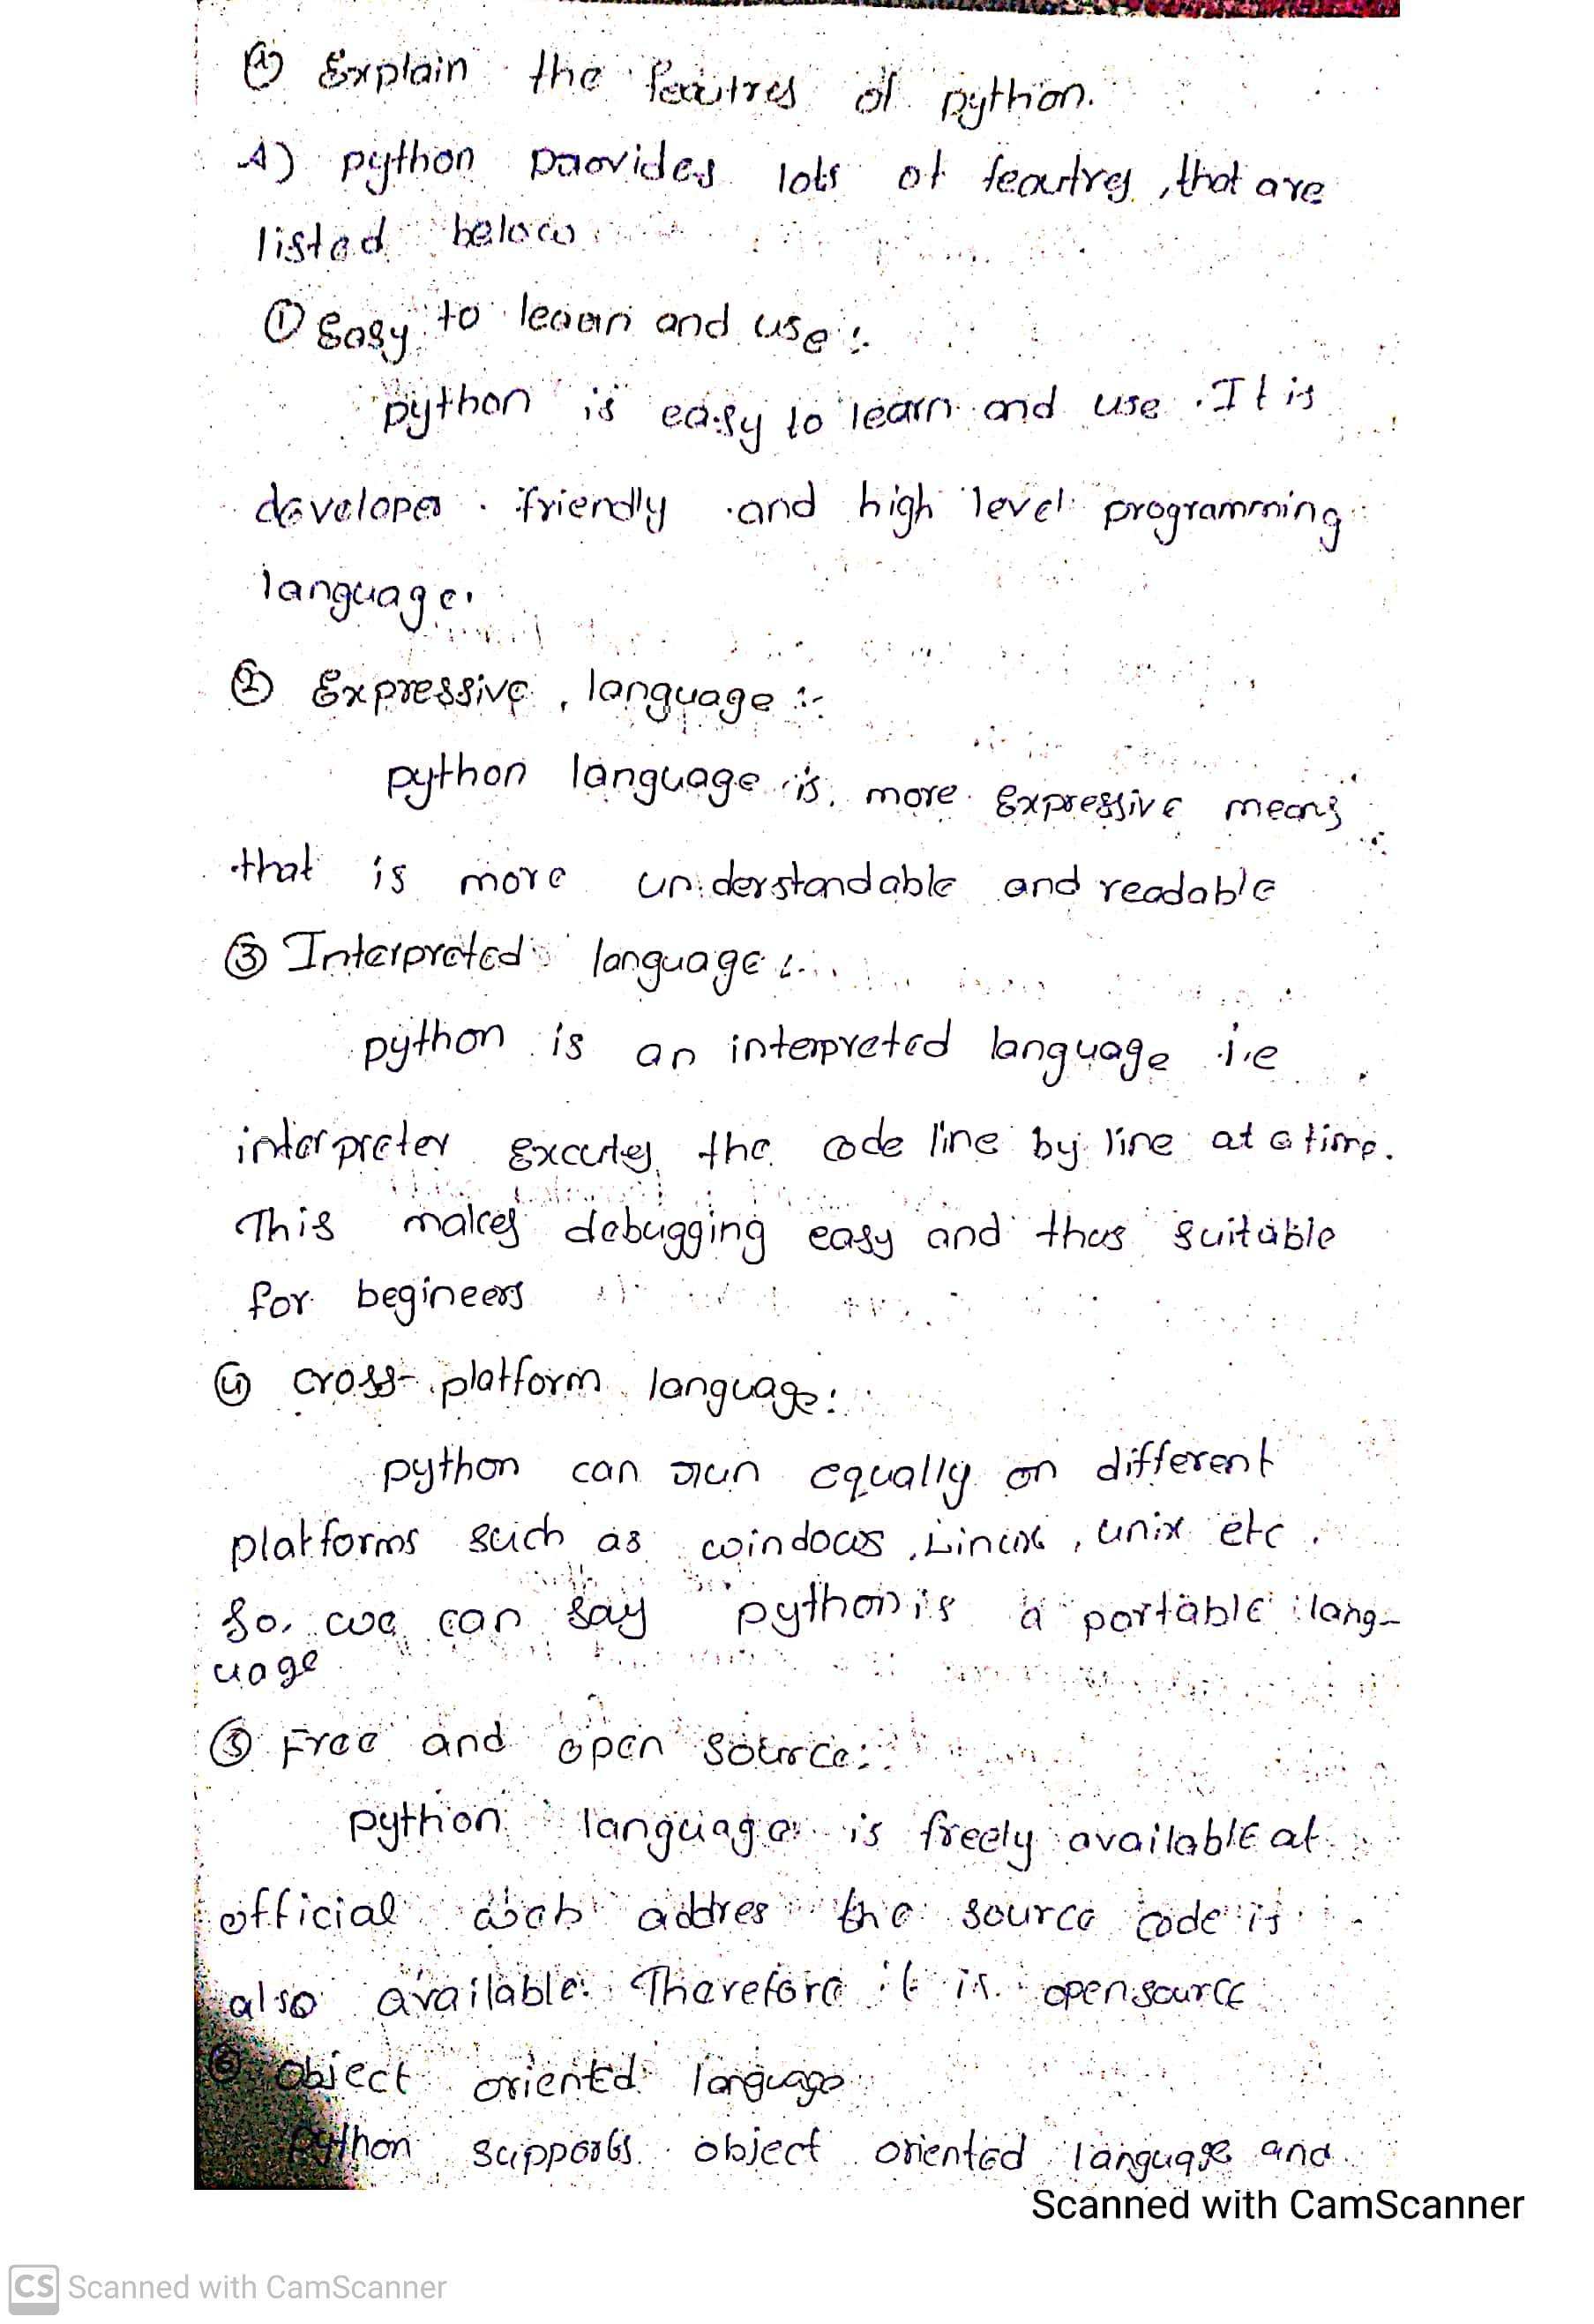 ① Explain the feautres of python.
A) python provides lots of feautres, that are
listed below
① Easy to learn and use :-
python is easy to learn and use. It is
developer friendly and high level programming
language.
② Expressive language :-
python language is more Expressive means
that is more understandable and readable
③ Interpreted language :-
python is an interpreted language i.e
interpreter Excutes the code line by line at a time.
This makes debugging easy and thus suitable
for begineers
④ cross-platform language:
python can run equally on different
platforms such as windows, Linux, unix etc.
So, we can say python is a portable lang-
uage
⑤ Free and open source:
python language is freely available at
official web addres the source code is
also available. Therefore it is opensource
⑥ object oriented language
python supports object oriented language and
Scanned with CamScanner
CS Scanned with CamScanner